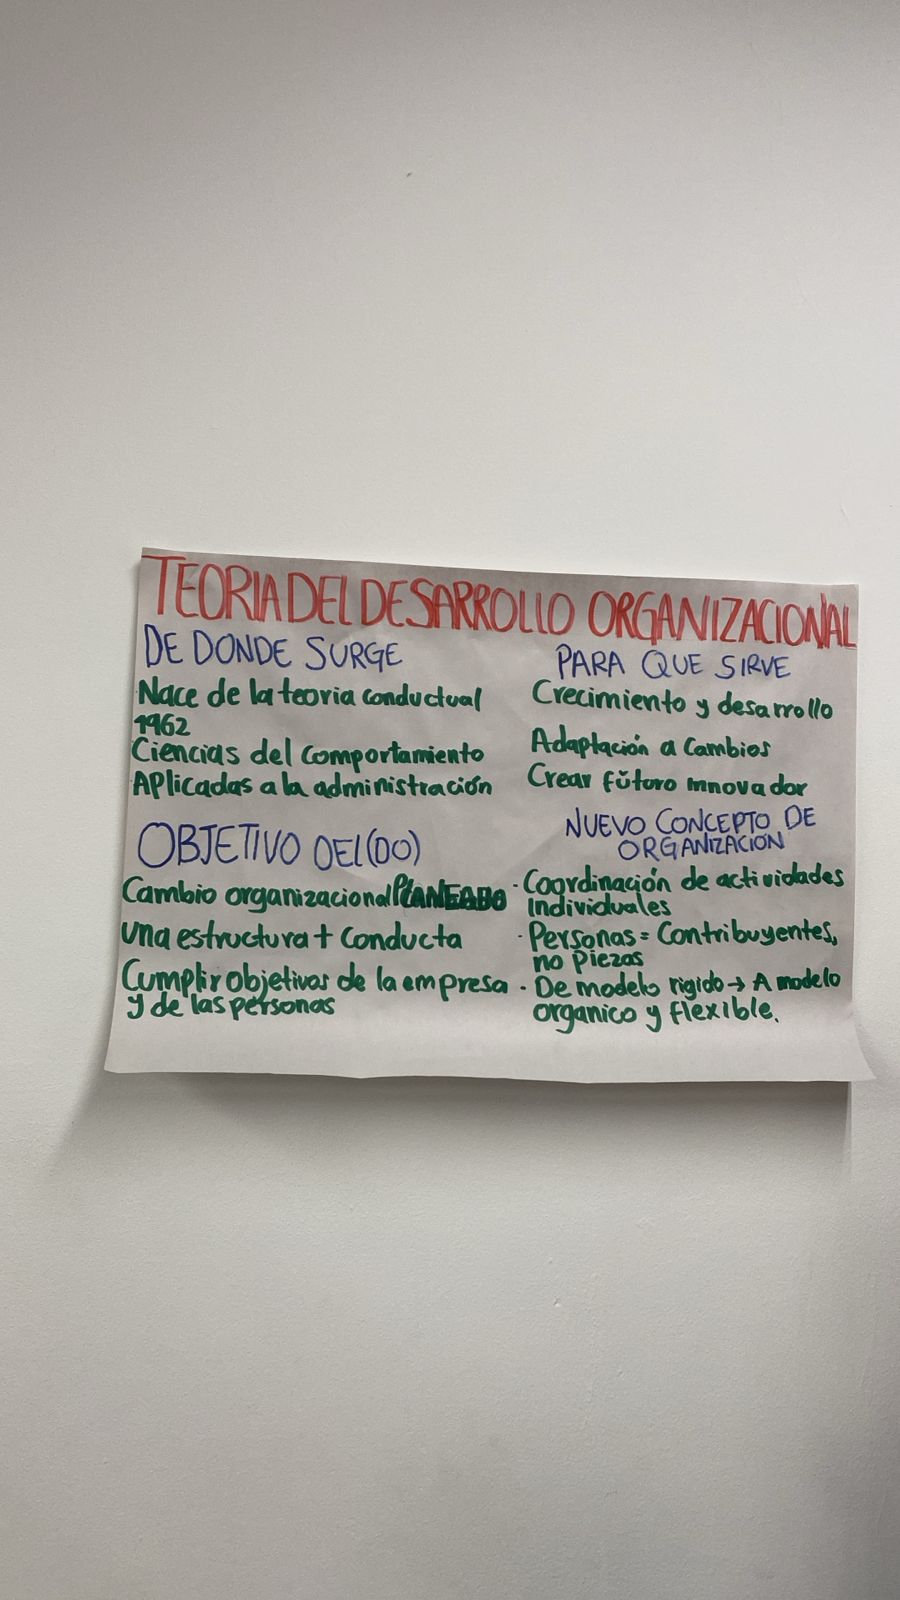 TEORIA DEL DESARROLLO ORGANIZACIONAL
DE DONDE SURGE
Nace de la teoria conductual
1962
Ciencias del comportamiento
Aplicadas a la administración
OBJETIVO DEL (DO)
Cambio organizacional PLANEADO
una estructura + conducta
Cumplir objetivos de la empresa
y de las personas
PARA QUE SIRVE
Crecimiento y desarrollo
Adaptación a cambios
Crear futuro innovador
NUEVO CONCEPTO DE
ORGANIZACIÓN
· Coordinación de actividades
individuales
· Personas = Contribuyentes,
no piezas
· De modelo rigido → A modelo
organico y flexible.